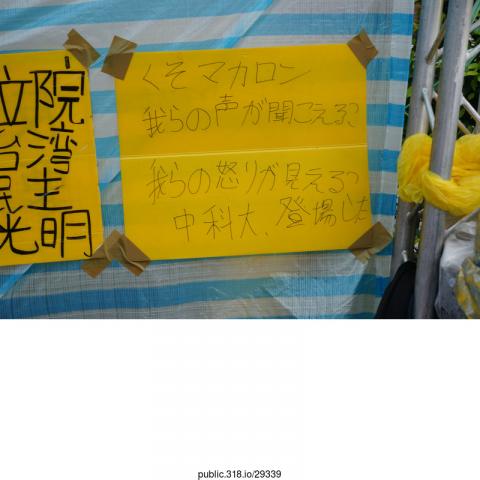 立院
台灣
民主
光明
くそマカロン
我らの声が聞こえる?
我らの怒りが見える?
中科大、登場した
public.318.io/29339